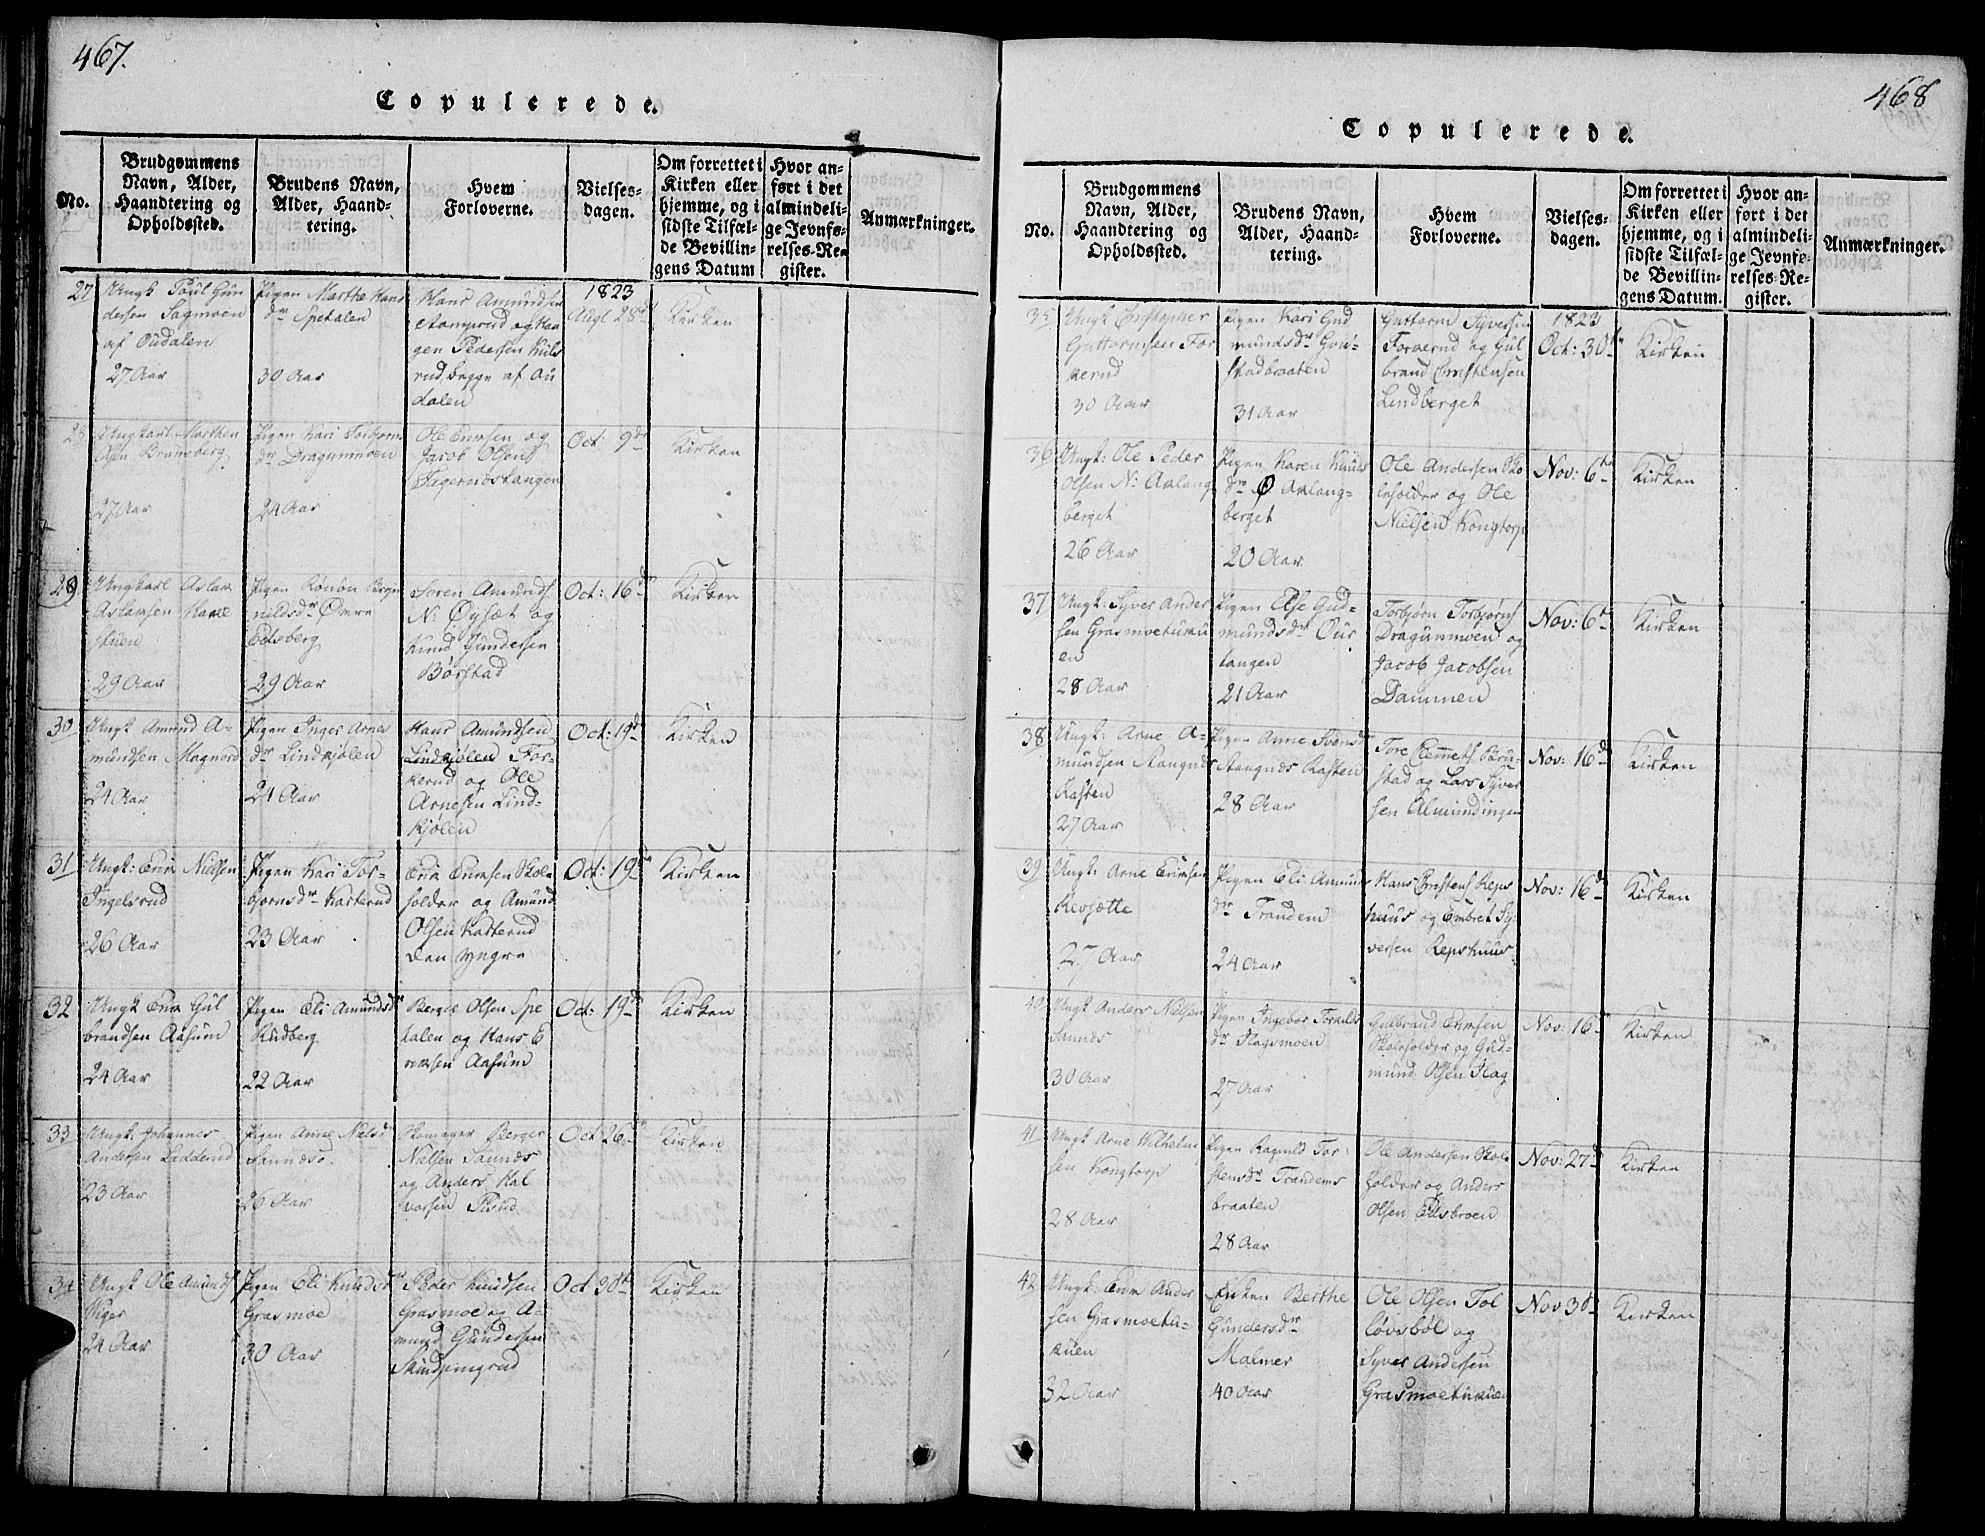 467.
Copulerede.
No.
Brudgommens Navn, Alder, Haandtering og Opholdssted.
Brudens Navn, Alder, Haandtering.
Hvem Forloverne.
Vielsesdagen.
Om forrettet i Kirken eller hjemme, og i sidste Tilfælde Bevillingens Datum
Hvor anført i det almindelige Jevnførelses-Register.
Anmærkninger.
27
Ungk Poul Gundersen Sagmoen af Oudalen
27 Aar
Pigen Marthe Hansdr Spetalen
30 Aar
Hans Amundsen og Haagen Pedersen Kulsrud, begge af Oudalen
1823
Augt 28de
Kirken
28
Ungkarl Morthen Olsen Brunsberg
27 Aar
Pigen Kari Torbjørnsdr Dragunmoen
24 Aar
Ole Ericsen og Jacob Olsen Tigernæstangen
Oct: 9de
Kirken
29
Ungkarl Aslak Aslaksen
29 Aar
Pigen Rønøv Eidsberg
29 Aar
Soren Amunds. N: Øysæt og Knud Gundersen Børstad
Oct: 16de
Kirken
30
Ungk Amund Amundsen Magnord
24 Aar
Pigen Inger Arnedr Lindkjølen
24 Aar
Hans Amundsen Lindkjølen Forkerud og Ole Arnesen Lindkjølen
Oct: 19de
Kirken
31
Ungk: Eric Nielsen Ingelsrud
26 Aar
Pigen Kari Torbjørnsdr Karterud
23 Aar
Eric Ericsen Skoleholder og Amund Olsen Karterud den yngre
Oct: 19de
Kirken
32
Ungk Eric Gulbrandsen Aasum
24 Aar
Pigen Eli Amundsdr Rudberg
22 Aar
Berger Olsen Spetalen og Hans Ericsen Aasum
Oct: 19de
Kirken
33
Ungk: Johannes Andersen Ladderud
23 Aar
Pigen Anne Nielsd Sannæs.
26 Aar
Skomager Berger Nielsen Sannæs og Anders Halvorsen
Oct 26de
Kirken
34
Ungk Ole Amunds Viger
24 Aar
Pigen Eli Knudsdr Grasmoe
30 Aar
Peder Knudsen Grasmoe og Amund Gundersen
Oct 30te
Kirken
468
Copulerede.
No.
Brudgommens Navn, Alder, Haandtering og Opholdssted.
Brudens Navn, Alder, Haandtering.
Hvem Forloverne.
Vielsesdagen.
Om forrettet i Kirken eller hjemme, og i sidste Tilfælde Bevillingens Datum.
Hvor anført i det almindelige Jevnførelses-Register.
Anmærkninger.
35
Ungk Christopher Guttormsen Forkerud
30 Aar
Pigen Kari Gudmundsdr
31 Aar
Guttorm Syversen Forkerud og Gulbrand Christensen Lindberget
1823
Oct: 30te
Kirken
36
Ungk: Ole Peder Olsen N: Aklangberget
26 Aar
Pigen Karen Knudsdr Ø Aklangberget
20 Aar
Ole Andersen Skoleholder og Ole Nielsen Kongtorp
Nov: 6te
Kirken
37
Ungk: Syver Andersen Grasmoetukuen
28 Aar
Pigen Else Gudmundsdr Ourtangen
21 Aar
Torbjørn Torbjørns Dragunmoen og Jacob Jacobsen Dammen
Nov: 6te
Kirken
38
Ungk: Arne Amundsen Stangnæs Kasten
27 Aar
Pigen Anne Svensd Stangnæs Kasten
28 Aar
Tore Clemets og Lars Syversen Almindingen
Nov: 16de
Kirken
39
Ungk: Arne Ericksen Revsætte
27 Aar
Pigen Eli Amundsdr Trandem
24 Aar
Hans Christens Repshuus og Embret Syversen Repshuus
Nov: 16de
Kirken
40
Ungk Anders Nielsen Sannæs
30 Aar
Pigen Ingebor Torkildsdr
27 Aar
Gulbrand Ericsen Skoleholder og Gudmund Olsen
Nov: 16de
Kirken
41
Ungk Arne Wilhelmsen Kongtorp
28 Aar
Pigen Ragnild Torstensdr Trandemsbraaten
28 Aar
Ole Andersen Skoleholder og Anders Olsen Eidsbroen
Nov: 27de
Kirken
42
Ungk: Eric Andersen Grasmoetukuen
32 Aar
Enken Berthe Gundersdr Malmer
40 Aar
Ole Olsen Tolløvsbøl og Syver Andersen Grasmoetukuen
Nov 30te
Kirken